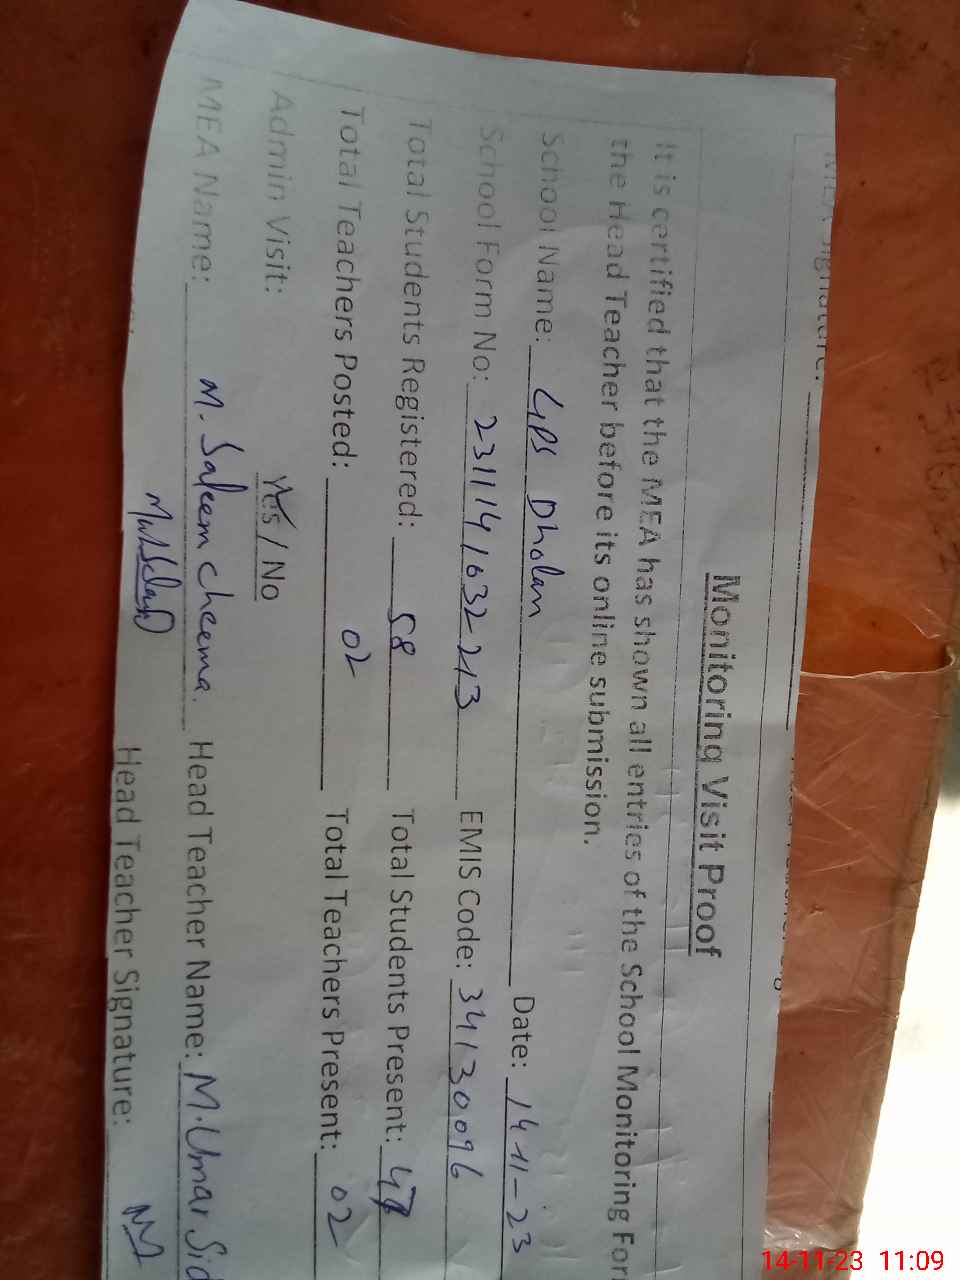 MEA Signature:
Monitoring Visit Proof
It is certified that the MEA has shown all entries of the School Monitoring For
the Head Teacher before its online submission.
School Name: GPS Dholan Date: 14-11-23
School Form No: 2311141632213 EMIS Code: 34130096
Total Students Registered: 58 Total Students Present: 47
Total Teachers Posted: 02 Total Teachers Present: 02
Admin Visit: Yes / No
MEA Name: M. Saleem Cheema. Head Teacher Name: M. Umar Sid
Head Teacher Signature:
14-11-23 11:09